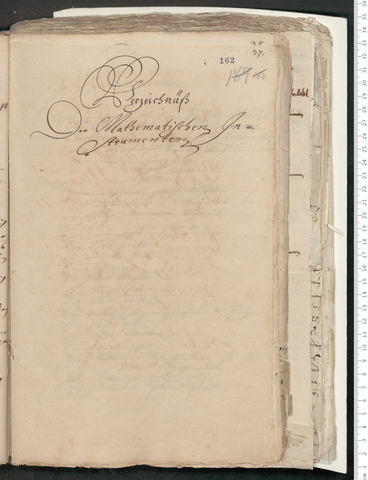 37.
162
Verzeichnüß
Der Mathematischen In=
strumenten